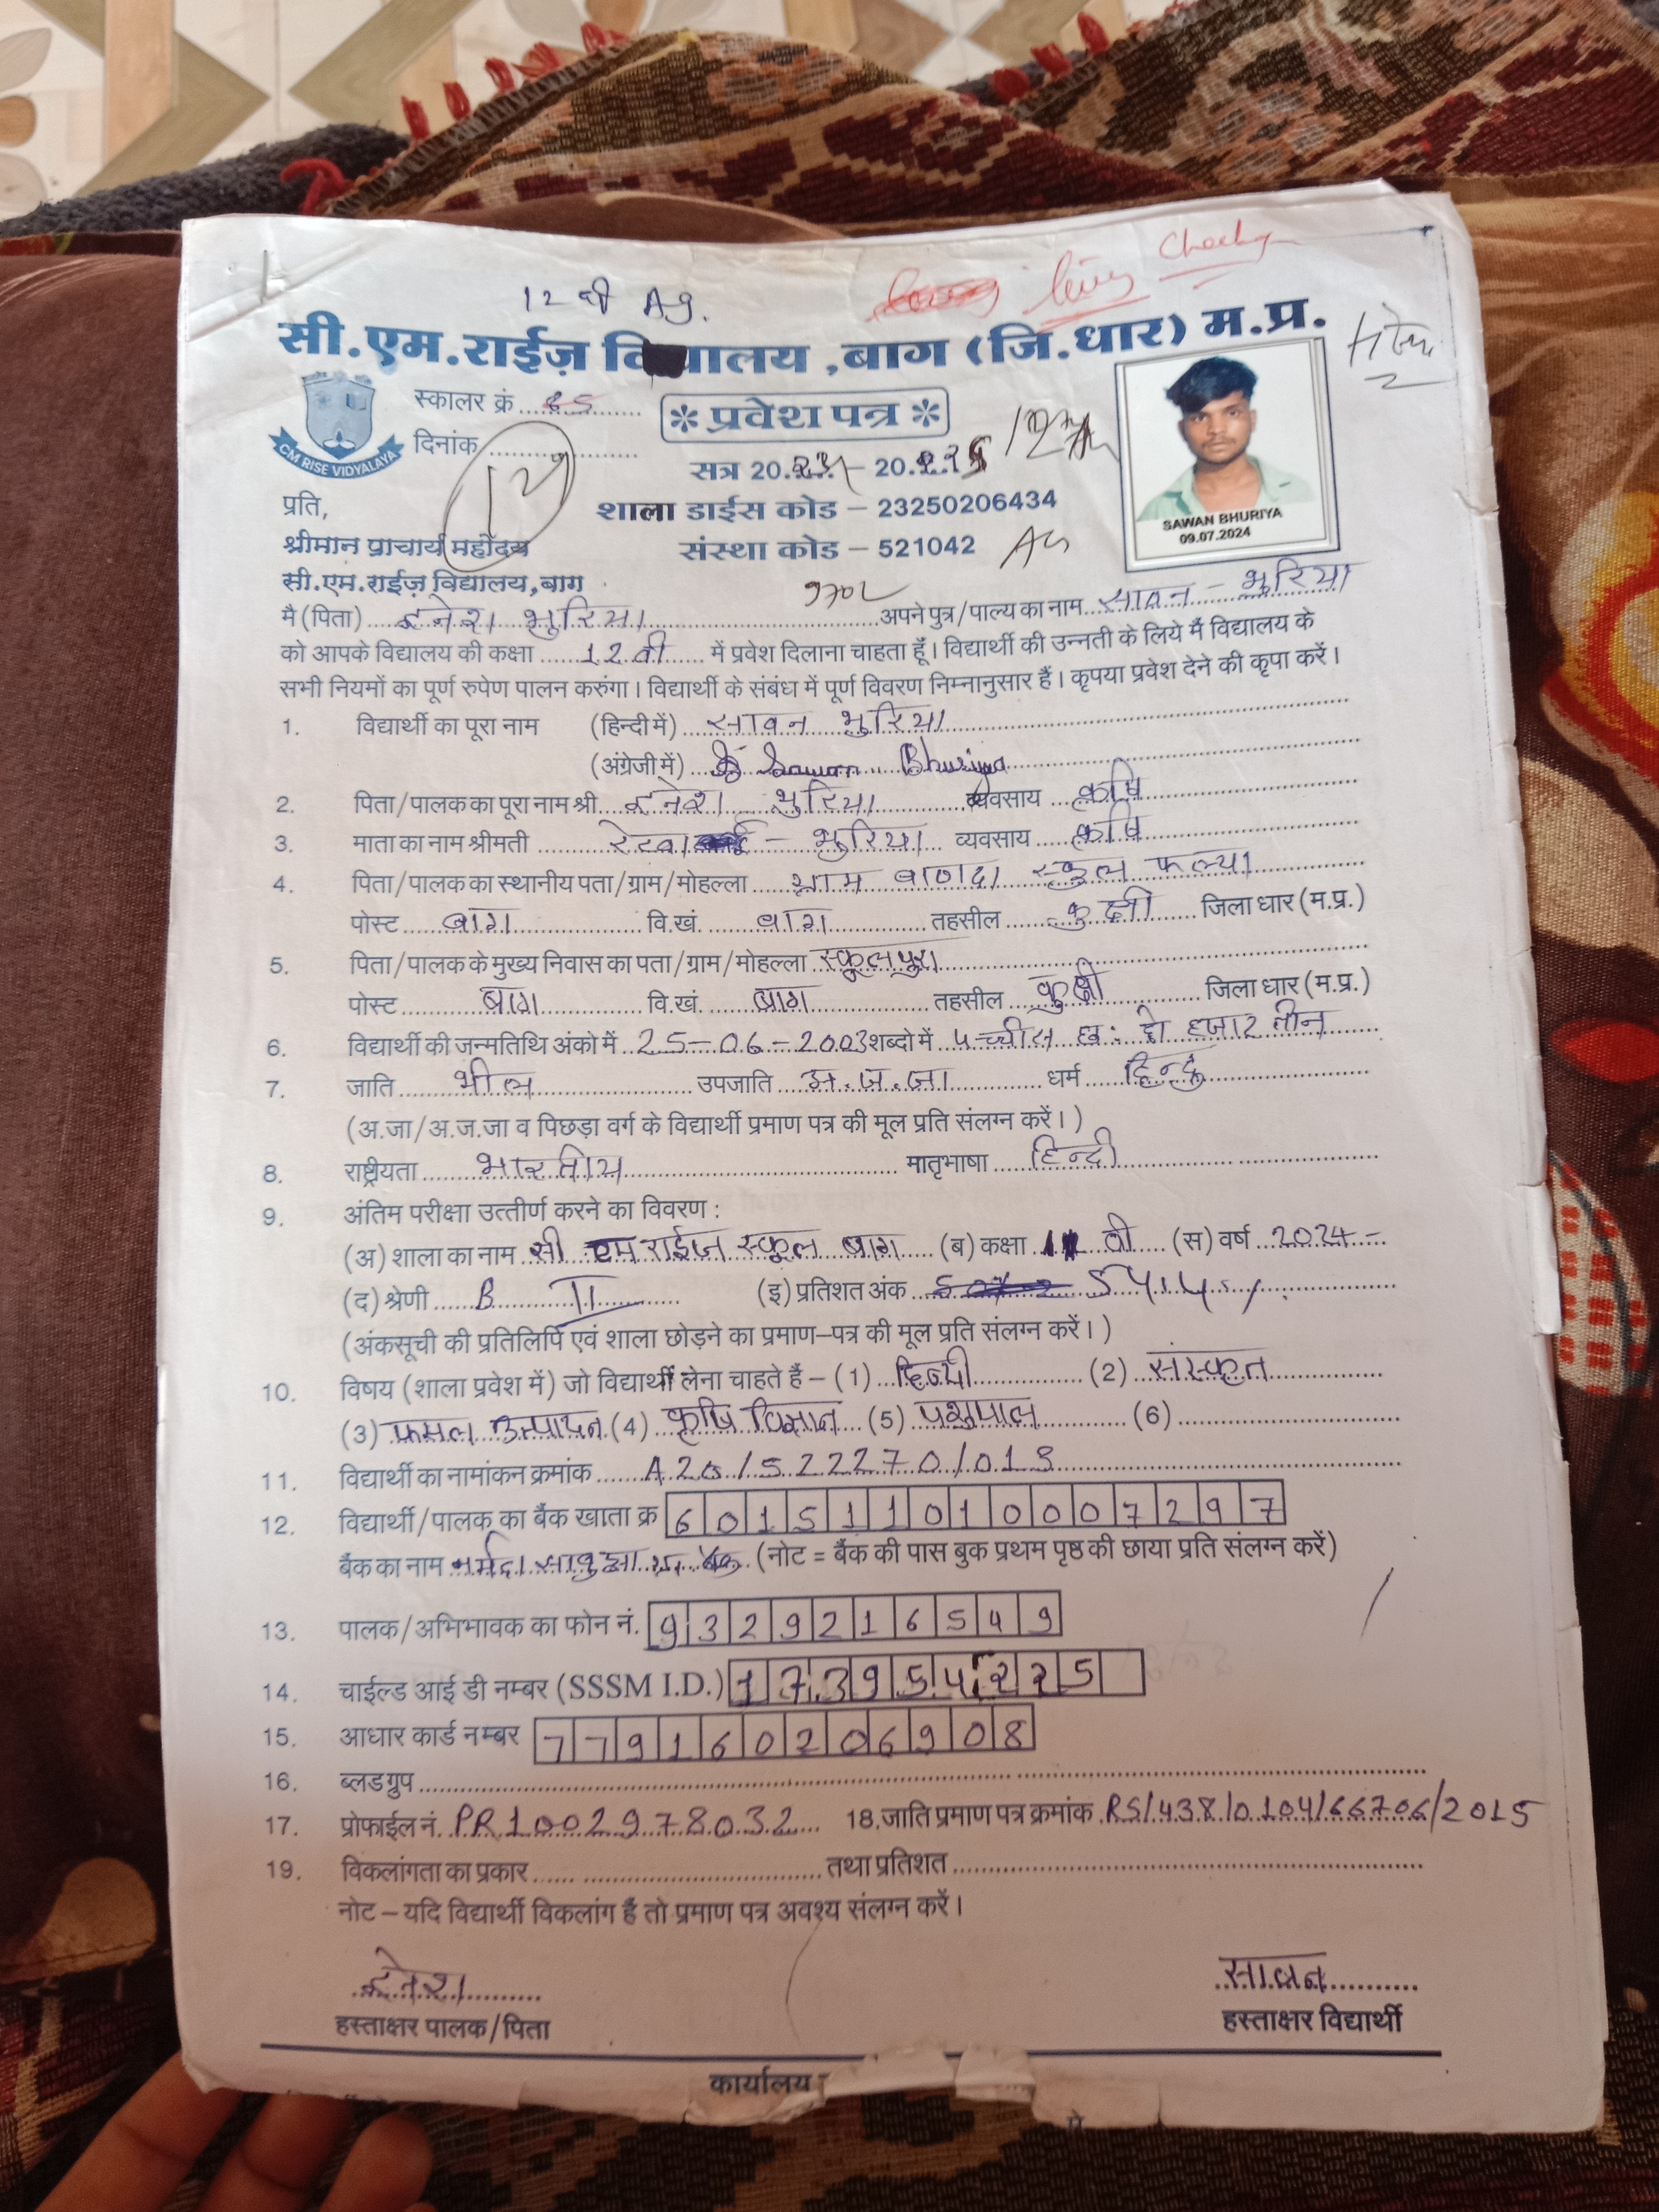 12 वी Ag.
सी.एम.राईज़ वि यालय ,बाग (जि.धार) म.प्र.
स्कालर क्रं
* प्रवेश पत्र *
दिनांक
CM RISE VIDYALAYA
सत्र 20 - 20
12
शाला डाईस कोड – 23250206434
संस्था कोड – 521042
SAWAN BHURIYA
09.07.2024
प्रति,
श्रीमान प्राचार्य महोदय
सी.एम.राईज़ विद्यालय,बाग
मै (पिता) दनेश भुरिया अपने पुत्र/पाल्य का नाम सावन - भुरिया
को आपके विद्यालय की कक्षा 12 वी में प्रवेश दिलाना चाहता हूँ। विद्यार्थी की उन्नती के लिये मैं विद्यालय के
सभी नियमों का पूर्ण रुपेण पालन करुंगा। विद्यार्थी के संबंध में पूर्ण विवरण निम्नानुसार हैं। कृपया प्रवेश देने की कृपा करें।
1. विद्यार्थी का पूरा नाम (हिन्दी में) सावन भुरिया
(अंग्रेजी में) Sawan Bhuriya
2. पिता/पालक का पूरा नाम श्री दनेश भुरिया व्यवसाय कृषि
3. माता का नाम श्रीमती रेखा - भुरिया व्यवसाय कृषि
4. पिता/पालक का स्थानीय पता/ग्राम/मोहल्ला ग्राम बाणदा स्कुल फल्या
पोस्ट बाग वि.खं. बाग तहसील कुक्षी जिला धार (म.प्र.)
5. पिता/पालक के मुख्य निवास का पता/ग्राम/मोहल्ला स्कूलपुरा
पोस्ट बाग वि.खं. बाग तहसील कुक्षी जिला धार (म.प्र.)
6. विद्यार्थी की जन्मतिथि अंको में 25-06-2003 शब्दो में पच्चीस छ: दो हजार तीन
7. जाति भील उपजाति अ.ज.जा धर्म हिन्दु
(अ.जा/अ.ज.जा व पिछड़ा वर्ग के विद्यार्थी प्रमाण पत्र की मूल प्रति संलग्न करें।)
8. राष्ट्रीयता भारतीय मातृभाषा हिन्दी
9. अंतिम परीक्षा उत्तीर्ण करने का विवरण :
(अ) शाला का नाम सी एम राईज स्कूल बाग (ब) कक्षा 11 वी (स) वर्ष 2024 -
(द) श्रेणी B II (इ) प्रतिशत अंक
(अंकसूची की प्रतिलिपि एवं शाला छोड़ने का प्रमाण–पत्र की मूल प्रति संलग्न करें।)
10. विषय (शाला प्रवेश में) जो विद्यार्थी लेना चाहते हैं – (1) हिन्दी (2) संस्कृत
(3) फसल उत्पादन (4) कृषि विज्ञान (5) पशुपाल (6)
11. विद्यार्थी का नामांकन क्रमांक A20/522270/013
12. विद्यार्थी/पालक का बैंक खाता क्र 601511010007297
बैंक का नाम नर्मदा (नोट = बैंक की पास बुक प्रथम पृष्ठ की छाया प्रति संलग्न करें)
13. पालक/अभिभावक का फोन नं. 9329216549
14. चाईल्ड आई डी नम्बर (SSSM I.D.) 173954225
15. आधार कार्ड नम्बर 779160206908
16. ब्लड ग्रुप
17. प्रोफाईल नं. PR1002978032 18. जाति प्रमाण पत्र क्रमांक RS/438/0104/66706/2015
19. विकलांगता का प्रकार तथा प्रतिशत
नोट – यदि विद्यार्थी विकलांग हैं तो प्रमाण पत्र अवश्य संलग्न करें।
दनेश सावन
हस्ताक्षर पालक/पिता हस्ताक्षर विद्यार्थी
कार्यालय